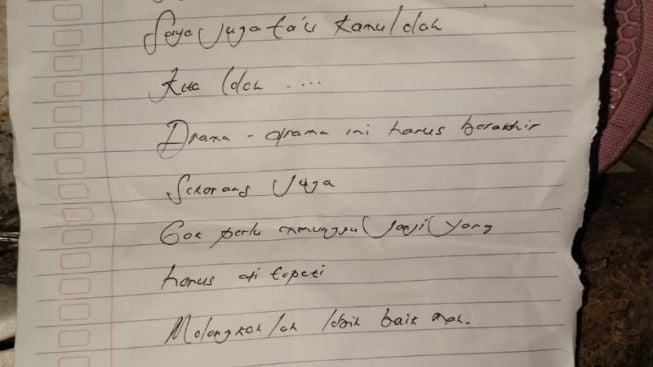 Saya Juga ta'u kamu/dah
Kua /dah ....
Drama - drama ini harus berakhir
Sekarang Juga
Gak perlu menunggu Janji Yang
harus di tepati
Melangkah lah lebih baik